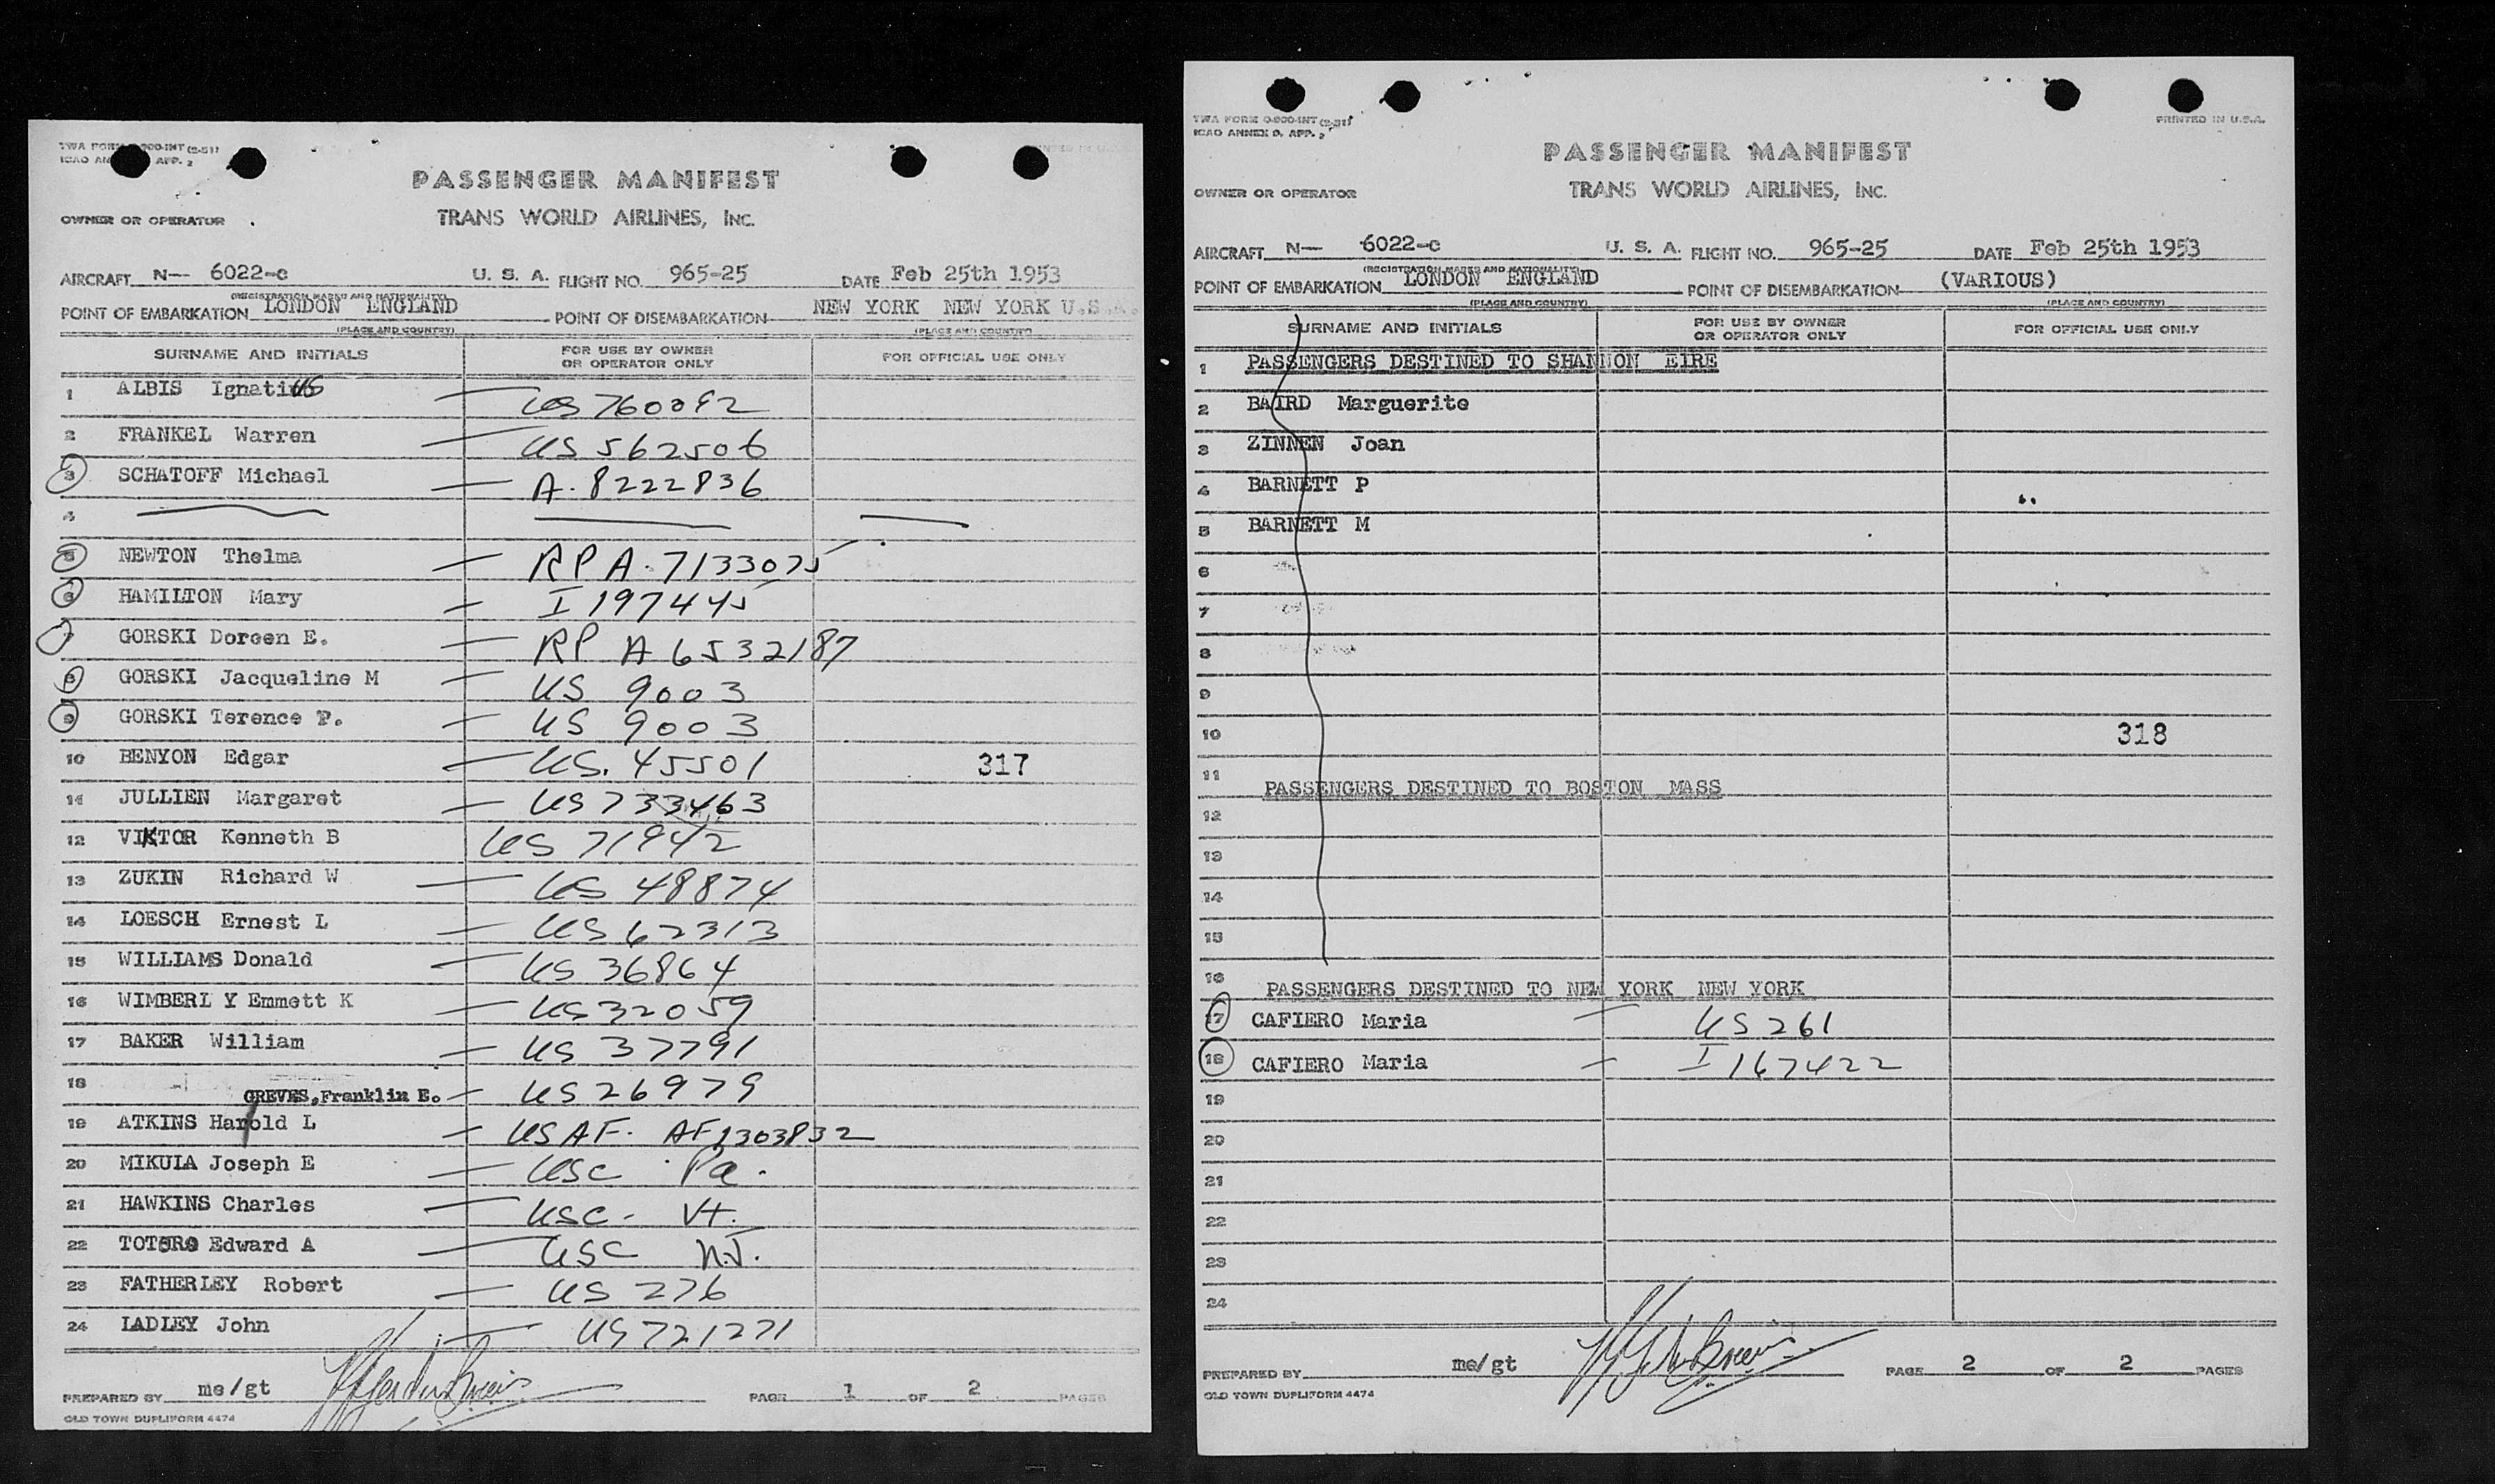 TWA FORM 0-900-INT (2-51)
ICAO ANNEX 9, APP. 2
PASSENGER MANIFEST
OWNER OR OPERATOR TRANS WORLD AIRLINES, INC.
AIRCRAFT N— 6022-c U. S. A. FLIGHT NO. 965-25 DATE Feb 25th 1953
(REGISTRATION MARKS AND NATIONALITY)
POINT OF EMBARKATION LONDON ENGLAND POINT OF DISEMBARKATION NEW YORK NEW YORK U.S.A.
(PLACE AND COUNTRY) (PLACE AND COUNTRY)
SURNAME AND INITIALS FOR USE BY OWNER OR OPERATOR ONLY FOR OFFICIAL USE ONLY
1 ALBIS Ignatius — US 760092
2 FRANKEL Warren — US 562506
3 SCHATOFF Michael — A-8222836
4
5 NEWTON Thelma — RP A-7133075
6 HAMILTON Mary — I 197445
7 GORSKI Doreen E. — RP A 6532187
8 GORSKI Jacqueline M — US 9003
9 GORSKI Terence P. — US 9003
10 BENYON Edgar — US. 45501 317
11 JULLIEN Margaret — US 733463
12 VIKTOR Kenneth B US 71942
13 ZUKIN Richard W — US 48874
14 LOESCH Ernest L — US 62313
15 WILLIAMS Donald — US 36864
16 WIMBERL Y Emmett K — US 32059
17 BAKER William — US 37791
18 GREVES, Franklin E. — US 26979
19 ATKINS Harold L — USAF. AF1303832
20 MIKULA Joseph E — USC Pa.
21 HAWKINS Charles — USC - Vt.
22 TOTORO Edward A — USC N.J.
23 FATHERLEY Robert — US 276
24 LADLEY John — US 721271
PREPARED BY me/gt PAGE 1 OF 2 PAGES
OLD TOWN DUPLIFORM 4474
TWA FORM 0-900-INT (2-51)
ICAO ANNEX 9, APP. 2
PRINTED IN U.S.A.
PASSENGER MANIFEST
OWNER OR OPERATOR TRANS WORLD AIRLINES, INC.
AIRCRAFT N— 6022-c U. S. A. FLIGHT NO. 965-25 DATE Feb 25th 1953
(REGISTRATION MARKS AND NATIONALITY)
POINT OF EMBARKATION LONDON ENGLAND POINT OF DISEMBARKATION (VARIOUS)
(PLACE AND COUNTRY) (PLACE AND COUNTRY)
SURNAME AND INITIALS FOR USE BY OWNER OR OPERATOR ONLY FOR OFFICIAL USE ONLY
1 PASSENGERS DESTINED TO SHANNON EIRE
2 BAIRD Marguerite
3 ZINNEN Joan
4 BARNETT P
5 BARNETT M
6
7
8
9
10 318
11 PASSENGERS DESTINED TO BOSTON MASS
12
13
14
15
16 PASSENGERS DESTINED TO NEW YORK NEW YORK
17 CAFIERO Maria — US 261
18 CAFIERO Maria — I 167422
19
20
21
22
23
24
PREPARED BY me/gt PAGE 2 OF 2 PAGES
OLD TOWN DUPLIFORM 4474